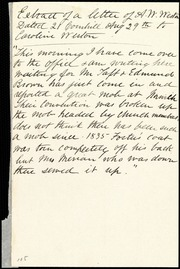 Extract of a letter of A. W. Weston
Dated 21 Cornhill Aug 29th to
Caroline Weston
"This morning I have come over
to the office am writing here
waiting for Mr Taft & Edmund
Brown has just come in and
reported a great mob at
Their Convention was broken up
the mob headed by church members
does not think there has been such
a mob since 1835 Foster's coat
was torn completely off his back
but Mrs Merriam who was down
there sewed it up."